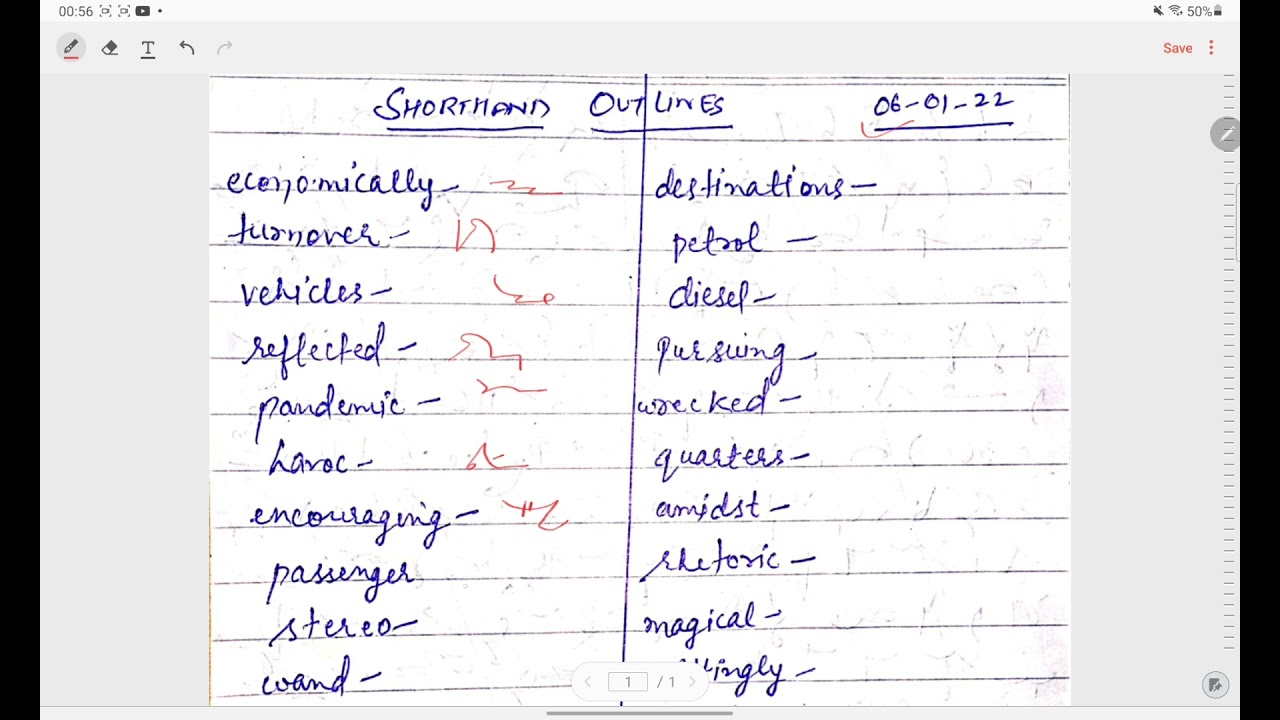 00:56 50%
T Save
SHORTHAND OUTLINES 06-01-22
economically - destinations -
turnover - petrol -
vehicles - diesel -
reflected - pursuing -
pandemic - wrecked -
havoc - quarters -
encouraging - amidst -
passenger rhetoric -
stereo - magical -
wand -
1 / 1